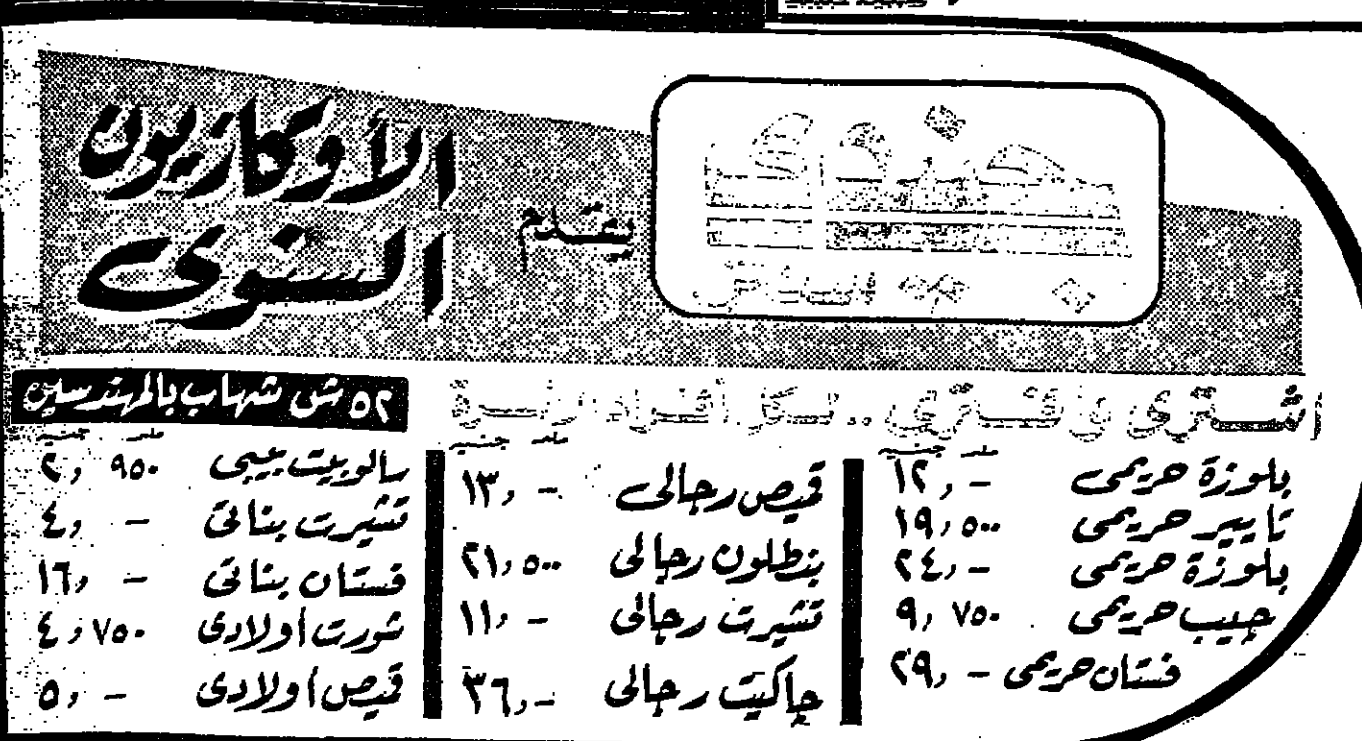 يقدم
الأوكازيون
السنوى
اشترى وا شترى .. لكل أفراد الأسرة
٥٢ ش شهاب بالمهندسين
مليم جنيه
بلوزة حريمى -,١٢
تايير حريمى ١٩,٥٠٠
بلوزة حريمى -,٢٤
جيب حريمى ٩,٧٥٠
فستان حريمى -,٢٩
مليم جنيه
قميص رجالى -,١٣
بنطلون رجالى ٢١,٥٠٠
تشيرت رجالى -,١١
جاكيت رجالى -,٣٦
مليم جنيه
سالوبيت بيبى ٢,٩٥٠
تشيرت بناتى -,٤
فستان بناتى -,١٦
شورت أولادى ٤,٧٥٠
قميص أولادى -,٥